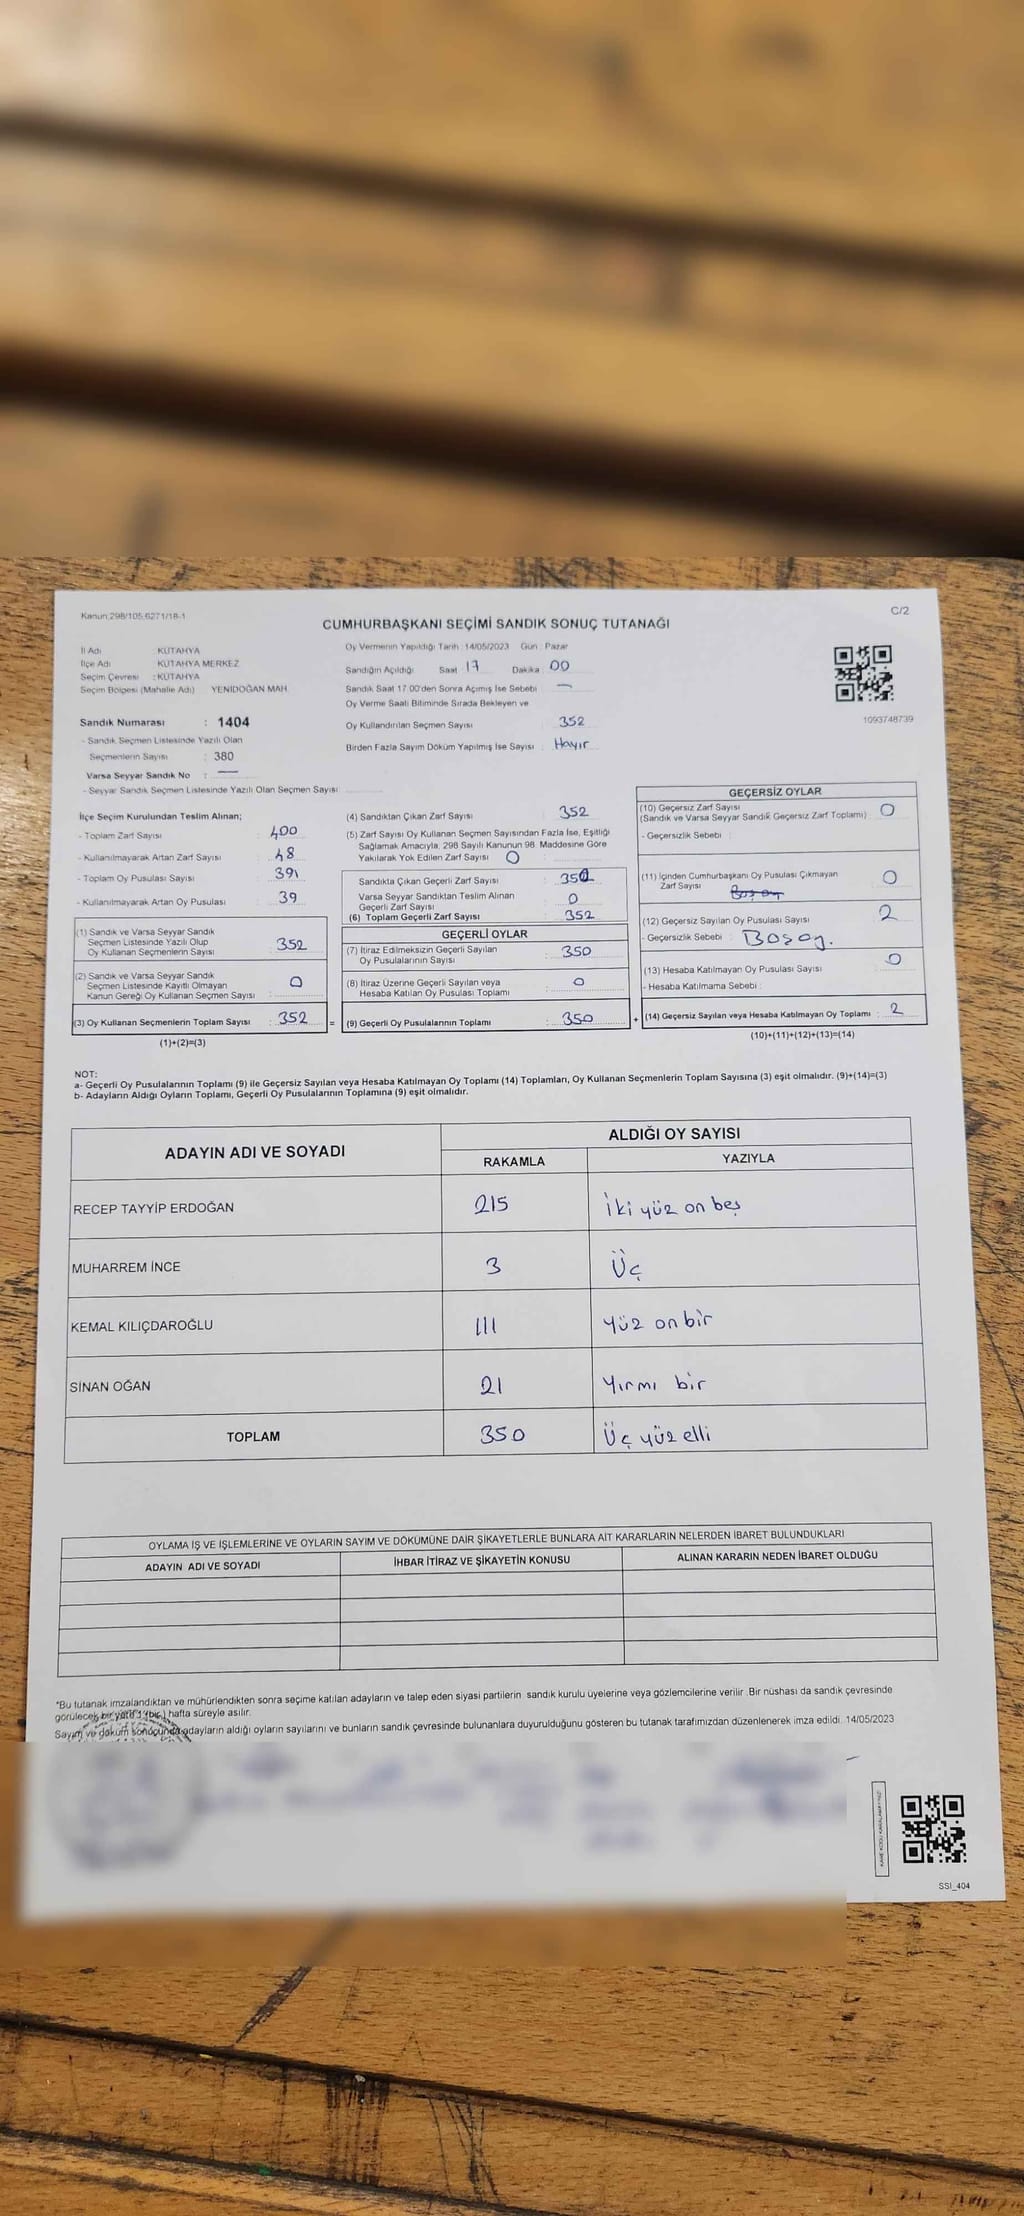 Kanun:298/105,6271/18-1
C/2
CUMHURBAŞKANI SEÇİMİ SANDIK SONUÇ TUTANAĞI
İl Adı : KÜTAHYA
İlçe Adı : KÜTAHYA MERKEZ
Seçim Çevresi : KÜTAHYA
Seçim Bölgesi (Mahalle Adı) : YENİDOĞAN MAH.
Sandık Numarası : 1404
- Sandık Seçmen Listesinde Yazılı Olan
Seçmenlerin Sayısı : 380
Varsa Seyyar Sandık No : —
- Seyyar Sandık Seçmen Listesinde Yazılı Olan Seçmen Sayısı
Oy Vermenin Yapıldığı Tarih : 14/05/2023 Gün : Pazar
Sandığın Açıldığı Saat : 17 Dakika : 00
Sandık Saat 17.00'den Sonra Açılmış İse Sebebi : —
Oy Verme Saati Bitiminde Sırada Bekleyen ve
Oy Kullandırılan Seçmen Sayısı : 352
Birden Fazla Sayım Döküm Yapılmış İse Sayısı : Hayır
1093748739
İlçe Seçim Kurulundan Teslim Alınan;
- Toplam Zarf Sayısı : 400
- Kullanılmayarak Artan Zarf Sayısı : 48
- Toplam Oy Pusulası Sayısı : 391
- Kullanılmayarak Artan Oy Pusulası : 39
(1) Sandık ve Varsa Seyyar Sandık
Seçmen Listesinde Yazılı Olup
Oy Kullanan Seçmenlerin Sayısı : 352
(2) Sandık ve Varsa Seyyar Sandık
Seçmen Listesinde Kayıtlı Olmayan
Kanun Gereği Oy Kullanan Seçmen Sayısı : 0
(3) Oy Kullanan Seçmenlerin Toplam Sayısı : 352
(1)+(2)=(3)
(4) Sandıktan Çıkan Zarf Sayısı : 352
(5) Zarf Sayısı Oy Kullanan Seçmen Sayısından Fazla İse, Eşitliği
Sağlamak Amacıyla, 298 Sayılı Kanunun 98. Maddesine Göre
Yakılarak Yok Edilen Zarf Sayısı : 0
Sandıkta Çıkan Geçerli Zarf Sayısı :
Varsa Seyyar Sandıktan Teslim Alınan
Geçerli Zarf Sayısı : 0
(6) Toplam Geçerli Zarf Sayısı : 352
GEÇERLİ OYLAR
(7) İtiraz Edilmeksizin Geçerli Sayılan
Oy Pusulalarının Sayısı : 350
(8) İtiraz Üzerine Geçerli Sayılan veya
Hesaba Katılan Oy Pusulası Toplamı : 0
= (9) Geçerli Oy Pusulalarının Toplamı : 350
GEÇERSİZ OYLAR
(10) Geçersiz Zarf Sayısı
(Sandık ve Varsa Seyyar Sandık Geçersiz Zarf Toplamı) : 0
- Geçersizlik Sebebi :
(11) İçinden Cumhurbaşkanı Oy Pusulası Çıkmayan
Zarf Sayısı : 0
(12) Geçersiz Sayılan Oy Pusulası Sayısı : 2
- Geçersizlik Sebebi :
(13) Hesaba Katılmayan Oy Pusulası Sayısı : 0
- Hesaba Katılmama Sebebi :
+ (14) Geçersiz Sayılan veya Hesaba Katılmayan Oy Toplamı : 2
(10)+(11)+(12)+(13)=(14)
NOT:
a- Geçerli Oy Pusulalarının Toplamı (9) ile Geçersiz Sayılan veya Hesaba Katılmayan Oy Toplamı (14) Toplamları, Oy Kullanan Seçmenlerin Toplam Sayısına (3) eşit olmalıdır. (9)+(14)=(3)
b- Adayların Aldığı Oyların Toplamı, Geçerli Oy Pusulalarının Toplamına (9) eşit olmalıdır.
ADAYIN ADI VE SOYADI
ALDIĞI OY SAYISI
RAKAMLA YAZIYLA
RECEP TAYYİP ERDOĞAN 215 İki yüz on beş
MUHARREM İNCE 3 Üç
KEMAL KILIÇDAROĞLU 111 Yüz on bir
SİNAN OĞAN 21 Yırmı bir
TOPLAM 350 Üç yüz elli
OYLAMA İŞ VE İŞLEMLERİNE VE OYLARIN SAYIM VE DÖKÜMÜNE DAİR ŞİKAYETLERLE BUNLARA AİT KARARLARIN NELERDEN İBARET BULUNDUKLARI
ADAYIN ADI VE SOYADI İHBAR İTİRAZ VE ŞİKAYETİN KONUSU ALINAN KARARIN NEDEN İBARET OLDUĞU
*Bu tutanak imzalandıktan ve mühürlendikten sonra seçime katılan adayların ve talep eden siyasi partilerin sandık kurulu üyelerine veya gözlemcilerine verilir. Bir nüshası da sandık çevresinde
görülecek bir yere 1 (bir) hafta süreyle asılır.
Sayım ve döküm sonucunda adayların aldığı oyların sayılarını ve bunların sandık çevresinde bulunanlara duyurulduğunu gösteren bu tutanak tarafımızdan düzenlenerek imza edildi. 14/05/2023
KARE KODU KARALAMAYINIZ!
SSI_404